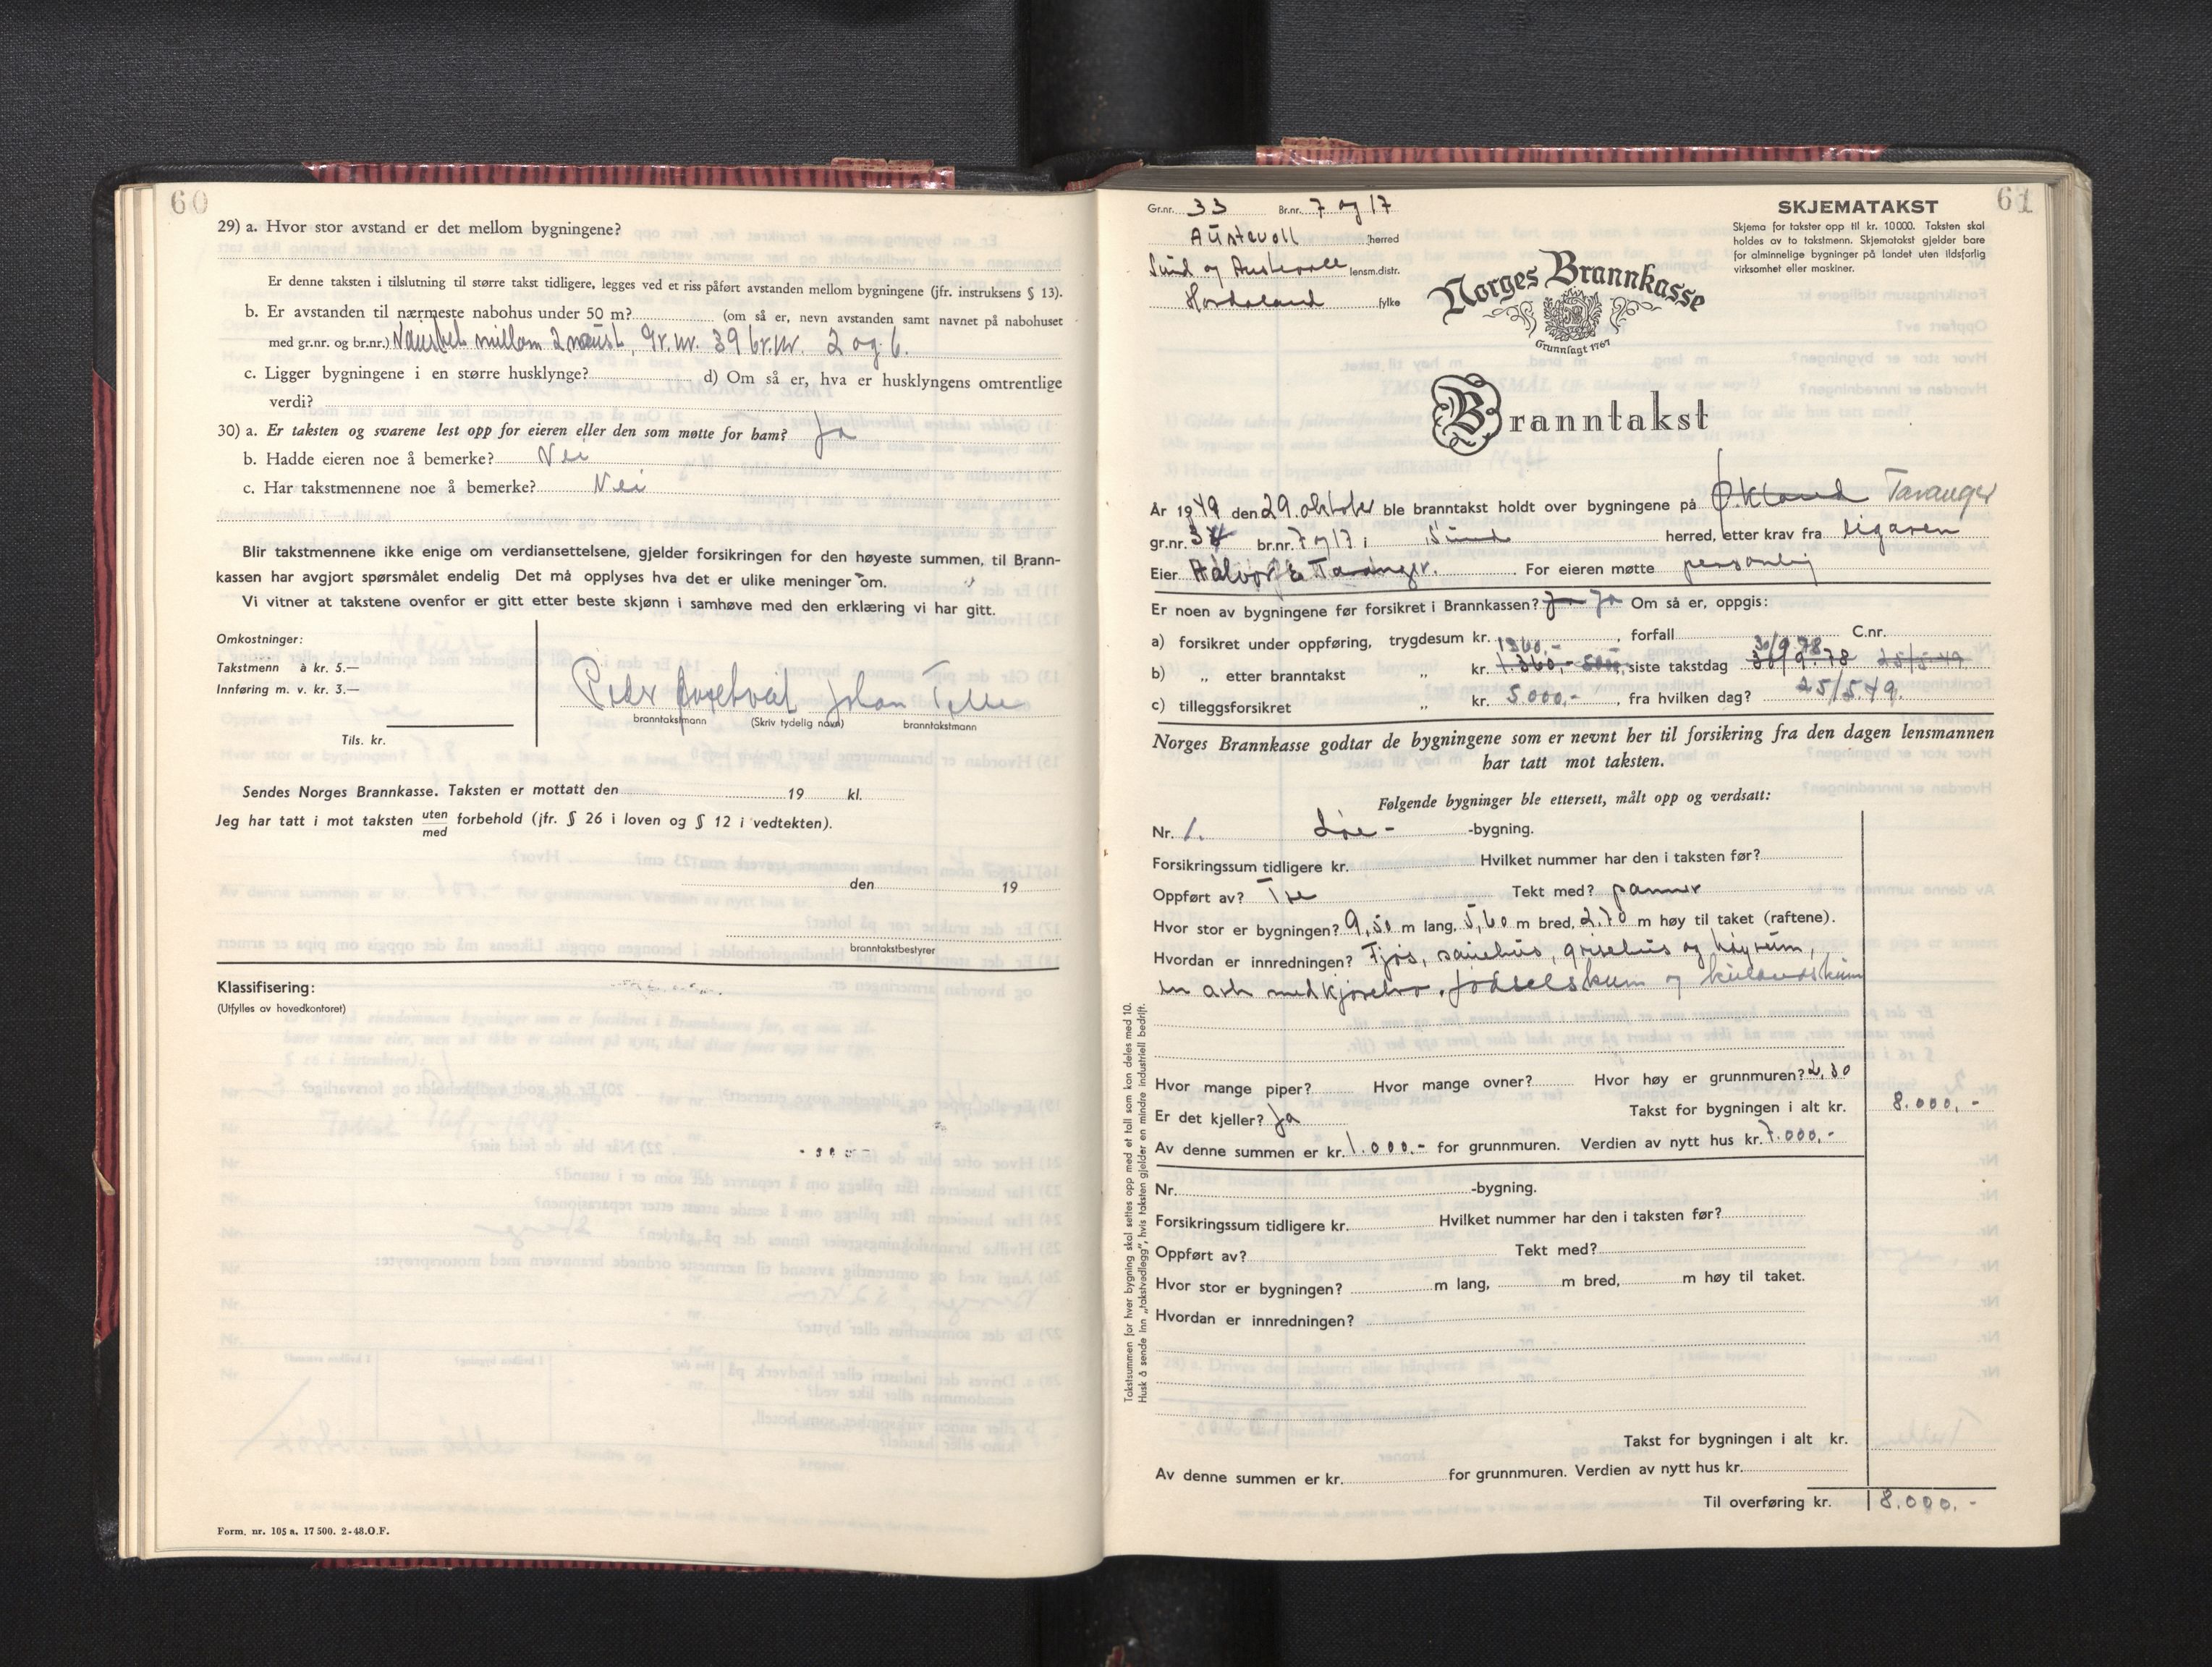 60
29) a. Hvor stor avstand er det mellom bygningene?
Er denne taksten i tilslutning til større takst tidligere, legges ved et riss påført avstanden mellom bygningene (jfr. instruksens § 13).
b. Er avstanden til nærmeste nabohus under 50 m? (om så er, nevn avstanden samt navnet på nabohuset
med gr.nr. og br.nr.) Naustet millom 2 naust, Gr.nr. 39 br.nr. 2 og 6.
c. Ligger bygningene i en større husklynge? d) Om så er, hva er husklyngens omtrentlige
verdi?
30) a. Er taksten og svarene lest opp for eieren eller den som møtte for ham? Ja
b. Hadde eieren noe å bemerke? Nei
c. Har takstmennene noe å bemerke? Nei
Blir takstmennene ikke enige om verdiansettelsene, gjelder forsikringen for den høyeste summen, til Brann-
kassen har avgjort spørsmålet endelig Det må opplyses hva det er ulike meninger om.
Vi vitner at takstene ovenfor er gitt etter beste skjønn i samhøve med den erklæring vi har gitt.
Omkostninger:
Takstmenn à kr. 5.—
Innføring m. v. kr. 3.—
Tils. kr.
Peder Johan Telle
branntakstmann (Skriv tydelig navn) branntakstmann
Sendes Norges Brannkasse. Taksten er mottatt den 19 kl.
Jeg har tatt i mot taksten uten/med forbehold (jfr. § 26 i loven og § 12 i vedtekten).
den 19
branntakstbestyrer
Klassifisering:
(Utfylles av hovedkontoret)
Form. nr. 105 a. 17 500. 2-48.O.F.
61
Gr.nr. 33 Br.nr. 7 og 17
Austevoll herred
Sund og Austevoll lensm.distr.
Hordaland fylke
Norges Brannkasse
Grunnlagt 1767
SKJEMATAKST
Skjema for takster opp til kr. 10000. Taksten skal
holdes av to takstmenn. Skjematakst gjelder bare
for alminnelige bygninger på landet uten ildsfarlig
virksomhet eller maskiner.
Branntakst
År 1949 den 29. oktober ble branntakst holdt over bygningene på Økland Taranger
gr.nr. 3 br.nr. 7 og 17 i Sund herred, etter krav fra eigaren
Eier Taranger. For eieren møtte personlig
Er noen av bygningene før forsikret i Brannkassen? Ja Ja Om så er, oppgis:
a) forsikret under oppføring, trygdesum kr. 1360,- , forfall 30/9.78 C.nr.
b) „ etter branntakst „ kr. 1.360,- 5000, siste takstdag 30/9.78 25/5.49
c) tilleggsforsikret „ kr. 5000,- , fra hvilken dag? 25/5.49.
Norges Brannkasse godtar de bygningene som er nevnt her til forsikring fra den dagen lensmannen
har tatt mot taksten.
Følgende bygninger ble ettersett, målt opp og verdsatt:
Nr. 1. Løe- -bygning.
Forsikringssum tidligere kr. Hvilket nummer har den i taksten før?
Oppført av? Tre Tekt med? panner
Hvor stor er bygningen? 9,50 m lang, 5,60 m bred, 2.70 m høy til taket (raftene).
Hvordan er innredningen? Fjøs, sauehus, grisehus og høyrum,
en ark med kjørebro. Jødselskum og
Hvor mange piper? Hvor mange ovner? Hvor høy er grunnmuren? 2,30
Er det kjeller? Ja Takst for bygningen i alt kr. 8.000,-
Av denne summen er kr. 1.000.- for grunnmuren. Verdien av nytt hus kr. 7.000,-
Nr. -bygning.
Forsikringssum tidligere kr. Hvilket nummer har den i taksten før?
Oppført av? Tekt med?
Hvor stor er bygningen? m lang, m bred, m høy til taket.
Hvordan er innredningen?
Takst for bygningen i alt kr.
Av denne summen er kr. for grunnmuren. Verdien av nytt hus kr.
Til overføring kr. 8.000.-
Takstsummen for hver bygning skal settes opp med et tall som kan deles med 10.
Husk å sende inn „takstvedlegg", hvis taksten gjelder en mindre industriell bedrift.